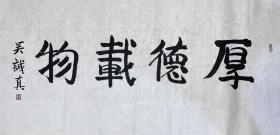 厚德載物
吴誠真